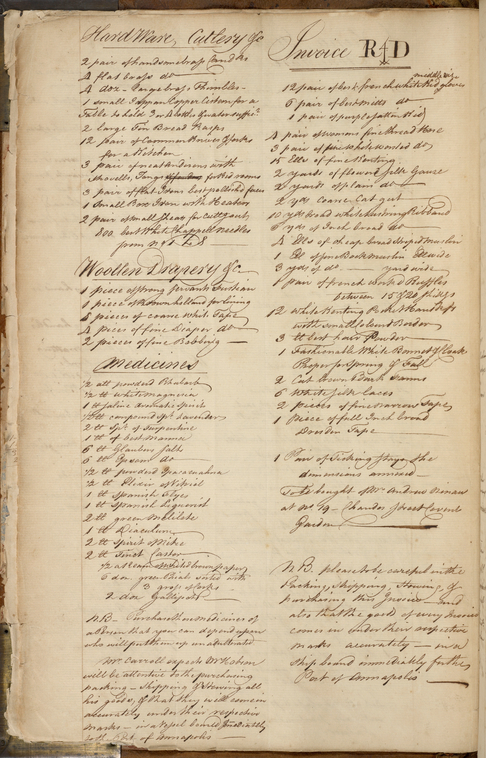 Hard Ware, Cutlery &c
2 pair of handsome brass Candks
4 flat brass do
4 doz. large brass Thimbles
1 small Japan Copper Cistern for a
Table to hold 3 or 4 bottles of water suffict.
2 large Tin Bread Rasps
12 pair of Common Knives & forks
for a Kitchen
3 pair of neat Andirons with
Shovells, Tongs for bed rooms
3 pair of flat Irons best polished faces
1 Small Box Iron with Heaters
2 pair of small Shears for Cutting out
800 best White Chappell needles
from No 1 to 8
Woollen Drapery &c
1 piece of strong servants
1 piece of Brown holland for lining
6 pieces of coarse Whit Tape
4 pieces of fine Diaper do
2 pieces of fine Bobbing
Medicines
2 tt powdred Rhubarb
1/2 tt white magnesia
1 tt saline aromatic spirit
1/2 tt compound Sp. Lavender
2 tt Spt. of Turpentine
1 tt of best manna
6 tt Glaubers salts
6 tt Epsom do
1/2 tt powdred Ipecacuanha
1/2 tt Elixir of Vitriol
1 tt Spanish Flyes
1 tt Spanish Liquorish
2 tt green Melilote
1 tt Diaculum
2 tt Spirit of Mitre
2 tt Tinct Castor
6 doz green Vials sorted with
3 gross of corks
2 doz Gallipots
NB Purchase the medicines of
a person that you can depend upon
who will put them up unadulterated
Mr. Carroll expects Mr.
will be attentive to the purchasing
packing - shipping & stowing all
his goods, & that they will come in
accurately under their respective
marks - in a vessel bound immediately
to the Port of Annapolis
Invoice R D
middle size
12 pair of best french white kid gloves
6 pair of best mitts do
1 pair of purple
4 pair of womens fine thread Hose
3 pair of fine white worsted do
15 Ells of fine Bunting
2 yards of flower'd silk Gauze
2 yards of plain do
2 yds coarse Cat gut
10 yds broad white Ribband
6 yds of Inch broad do
4 Ells of cheap broad striped muslin
1 Ell of fine Book muslin Ell wide
3 yds of do yard wide
1 pair of french work'd Ruffles
between 15 & 20 shillgs
12 White Bunting Pocket Handkfs
with small of Border
3 tt best hair Powder
1 Fashionable White Bonnet & Cloak
Proper for Spring & Fall
2 Cut brown & dark
6 White silk Laces
2 pieces of fine narrow Tape
1 Piece of full Inch broad
Dresden Tape
1 Pair of Ticking stays, the
dimensions annexed
To be bought of Mr Andrew
at No. 19 Chandos Street Covent
Garden
NB. please to be careful in the
Packing, Shipping, Stowing, &
purchasing this Invoice and
also that the goods of every Invoice
comes in under their respective
marks accurately - in a
ship bound immediately for the
Port of Annapolis